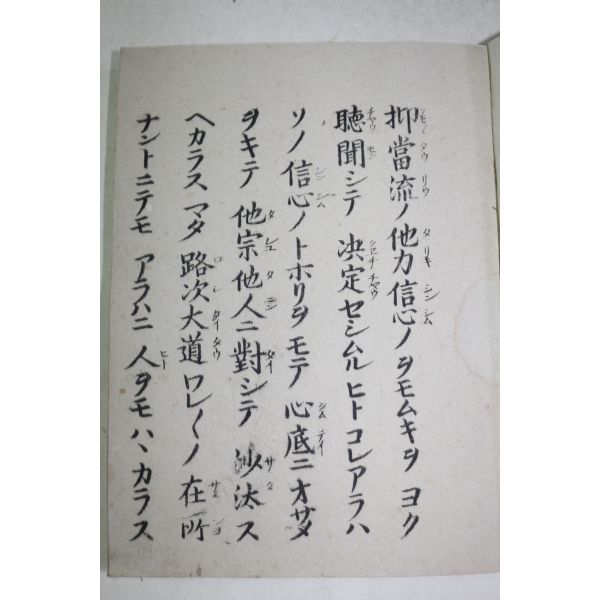 抑當流ノ他力信心ノヲモムキヲ ヨク
聴聞シテ 決定セシムルヒトコレアラハ
ソノ信心ノトホリヲモテ 心底ニオサメ
ヲキテ 他宗他人ニ對シテ 沙汰ス
ヘカラス マタ 路次大道ワレ〱ノ在所
ナントニテモ アラハニ人ヲモハヽカラス